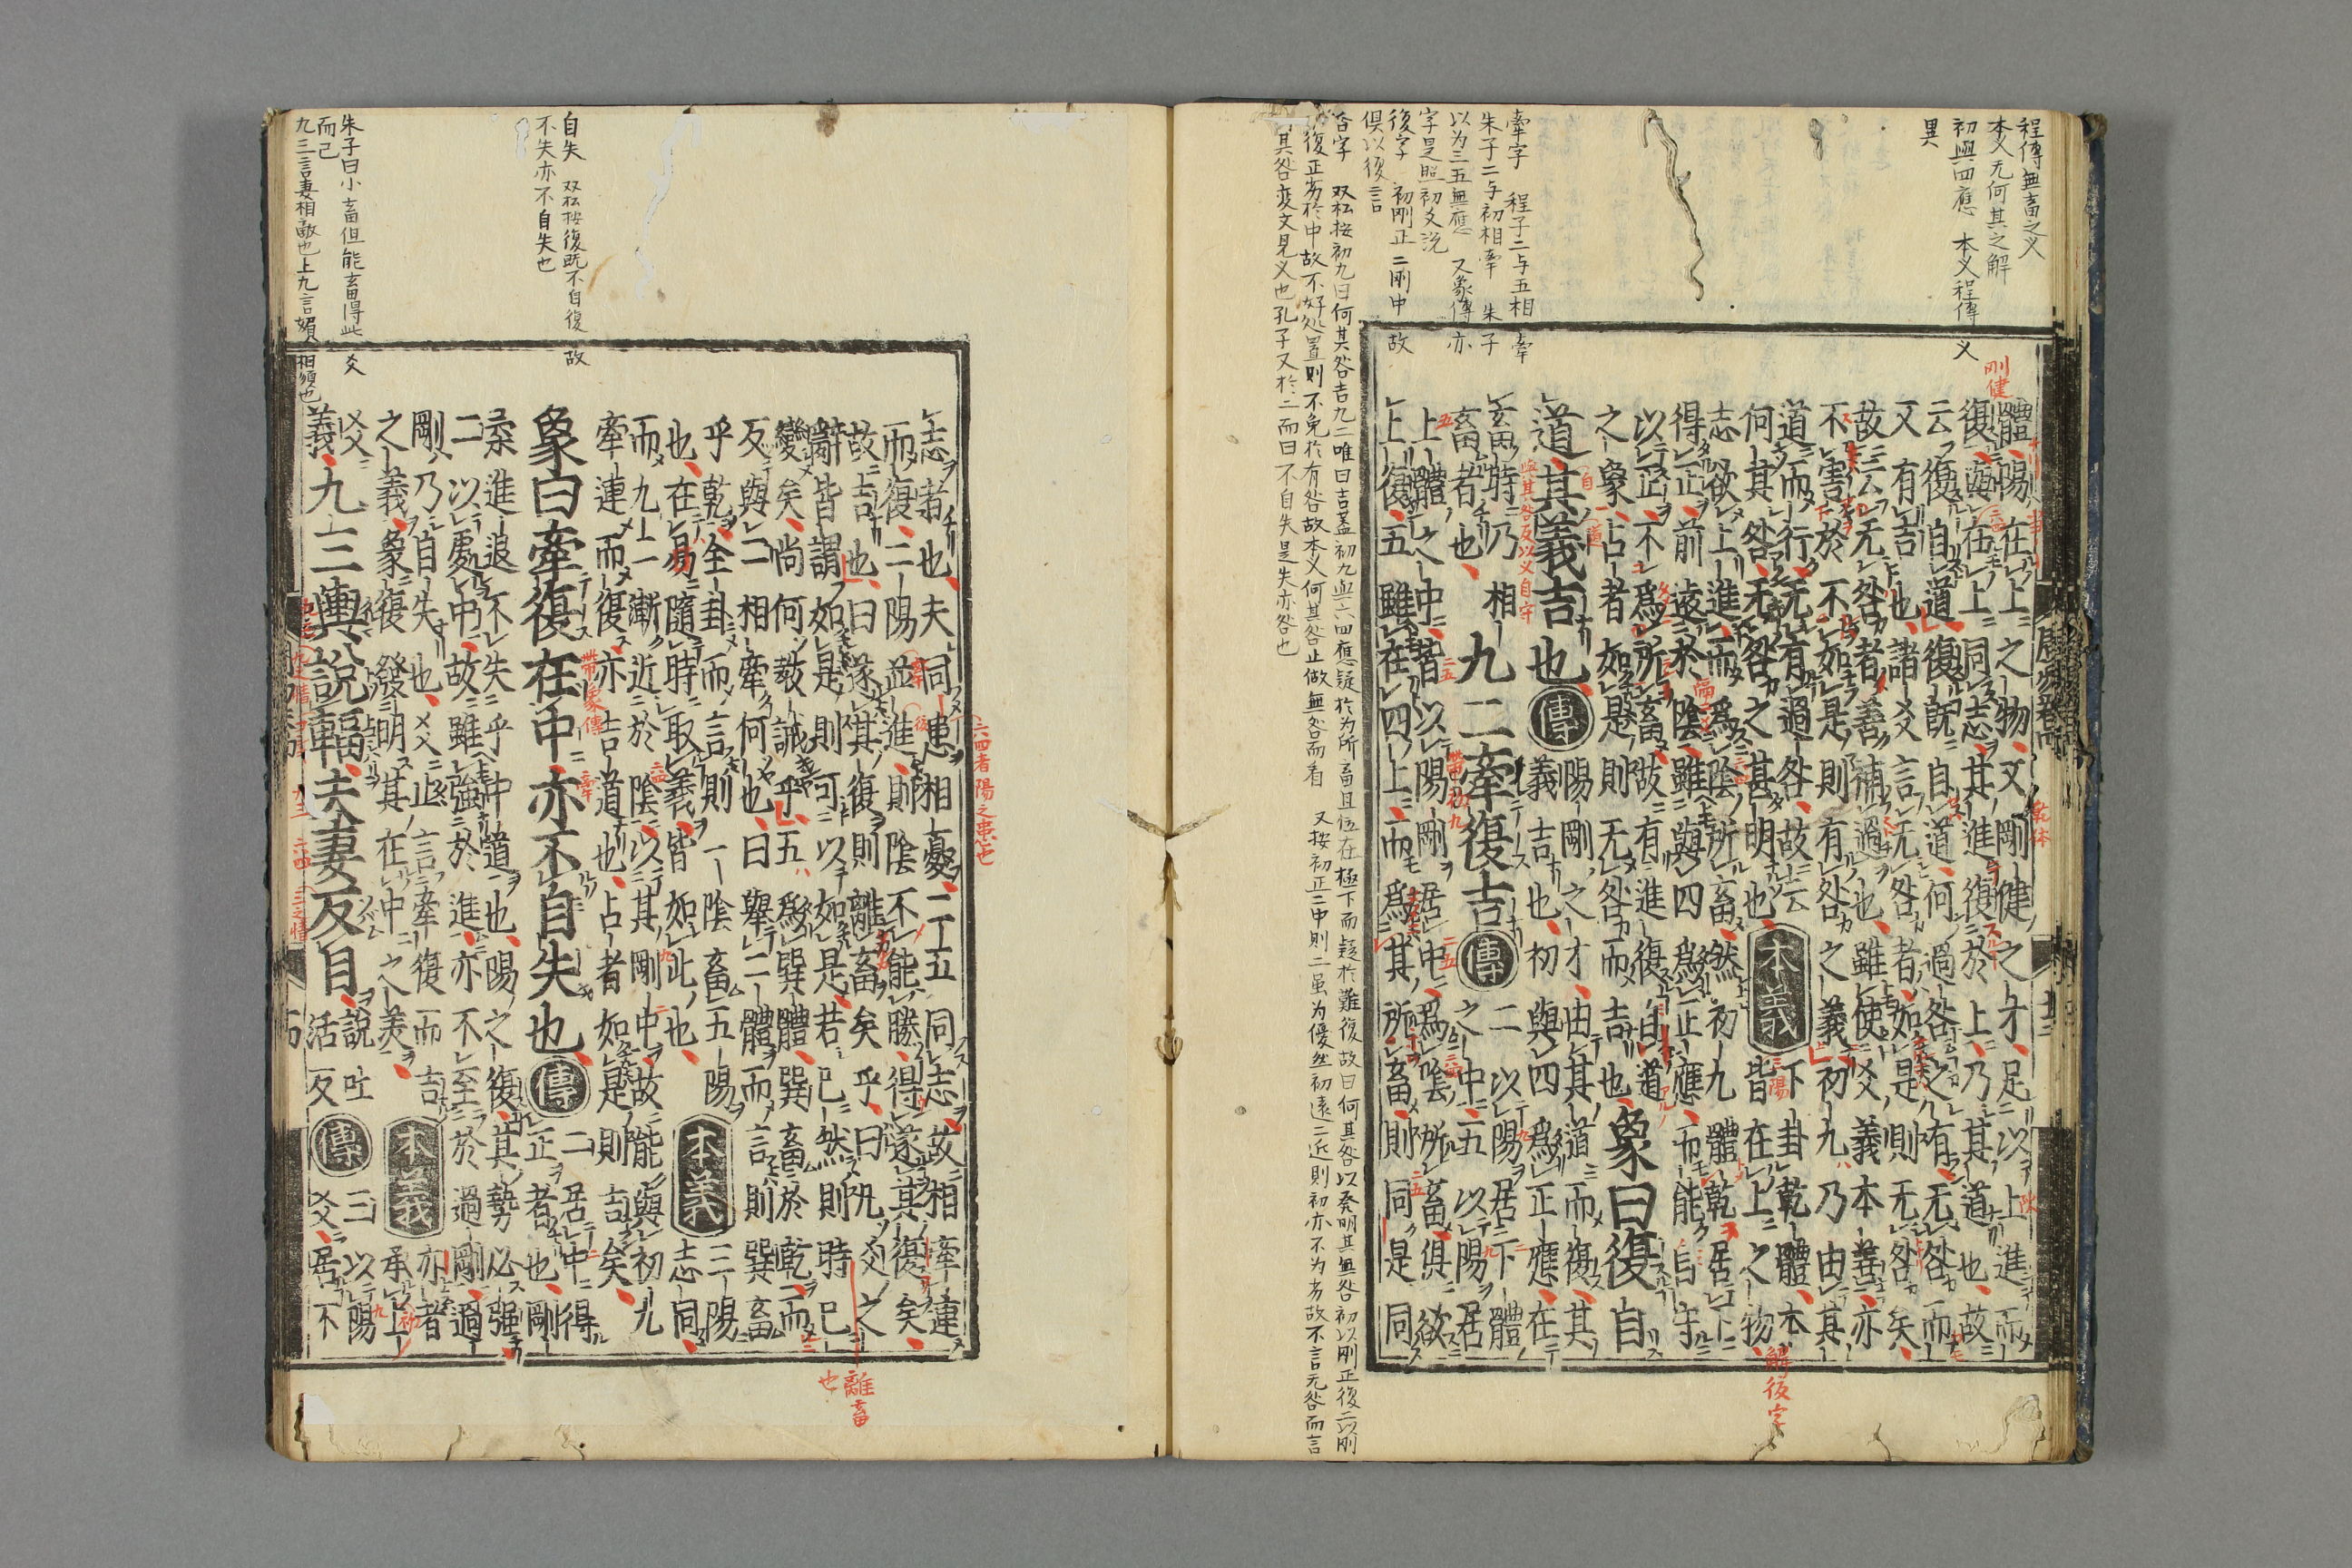 程傳無畜之义
本义无何其之解
初與四應 本义程傳 义
異
牽字 程子二与五相牽
朱子二与初相牽 朱子
以为三五無應 又象傳亦
字是照初爻説
復字 初剛正 二剛中 故
俱以復言
咎字 双松按初九曰何其咎吉九二唯曰吉蓋初九與六四應疑於为所畜且位在極下而疑於難復故曰何其咎以発明其無咎初以剛正復二以剛
復正劣於中故不好処置則不免於有咎故本义何其咎止做無咎而看 又按初正二中則二虽为優然初遠二近則初亦不为劣故不言无咎而言
其咎変文見义也孔子又於二而曰不自失是失亦咎也
剛健
體陽在上之物又剛健之才足以上進而
復與在上同志其進復於上乃其道也故
云復自道復既自道何過咎之有无咎而
又有吉也諸爻言无咎者如是則无咎矣
故云无咎者善補過也雖使爻義本善亦
不害於不如是則有咎之義初九乃由其
道而行无有過咎故云
何其咎无咎之甚明也
本義
下卦乾體本
皆在上之物
志欲上進而爲陰所畜然初九體乾居下
得正前遠於陰雖與四爲正應而能自守
以正不爲所畜故有進復自道
之象占者如是則无咎而吉也
象曰復自
道其義吉也
傳
陽剛之才由其道而復其
義吉也初與四爲正應在
畜時乃相
畜者也
九二牽復吉
傳
二以陽居下體
之中五以陽居
上體之中皆以陽剛居中爲陰所畜俱欲
上復五雖在四上而爲其所畜則同是同
解復字
與其咎反以义自守
帶初九
六四者陽之患也
志者也夫同患相憂二五同志故相牽連
而復二陽並進則陰不能勝得遂其復矣
故吉也曰遂其復則離畜矣乎曰凡爻之
辭皆謂如是則可以如是若已然則時已
變矣尚何教誡乎五爲巽體巽畜於乾而
反與二相牽何也曰舉二體而言則巽畜
乎乾全卦而言則一陰畜五陽
也在易隨時取義皆如此也
本義
三陽志同
而九二漸近於陰以其剛中故能與初九
牽連而復亦吉道也占者如是則吉矣
象曰牽復在中亦不自失也
傳
二居中得
正者也剛
柔進退不失乎中道也陽之復其勢必强
二以處中故雖強於進亦不至於過剛過
剛乃自失也爻止言牽復而吉
之義象復發明其在中之美
本義
亦者
承上
爻
義
九三輿說輻夫妻反目
說吐
活反
傳
三以陽
爻居不
離畜
也
帶象傳
自失 双松按復既不自復 故
不失亦不自失也
朱子曰小畜但能畜得此爻
而已
九三言妻相敵也上九言媍相須也